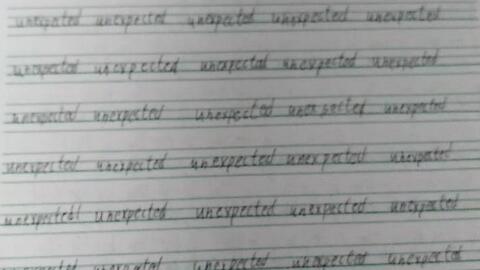 unexpected unexpected unexpected unexpected unexpected
unexpected unexpected unexpected unexpected unexpected
unexpected unexpected unexpected unexpected unexpected
unexpected unexpected unexpected unexpected unexpected
unexpected unexpected unexpected unexpected unexpected
unexpected unexpected unexpected unexpected